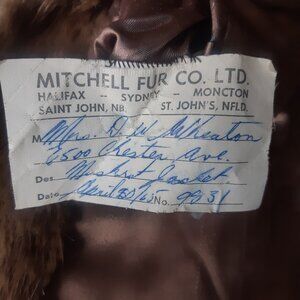 MITCHELL FUR CO. LTD.
HALIFAX - SYDNEY - MONCTON
SAINT JOHN, NB. ST. JOHN'S, NFLD.
M Mrs. D.W. Wheaton
6500 Chester Ave.
Des. Muskrat Jacket
Date April 30/65 No. 99031